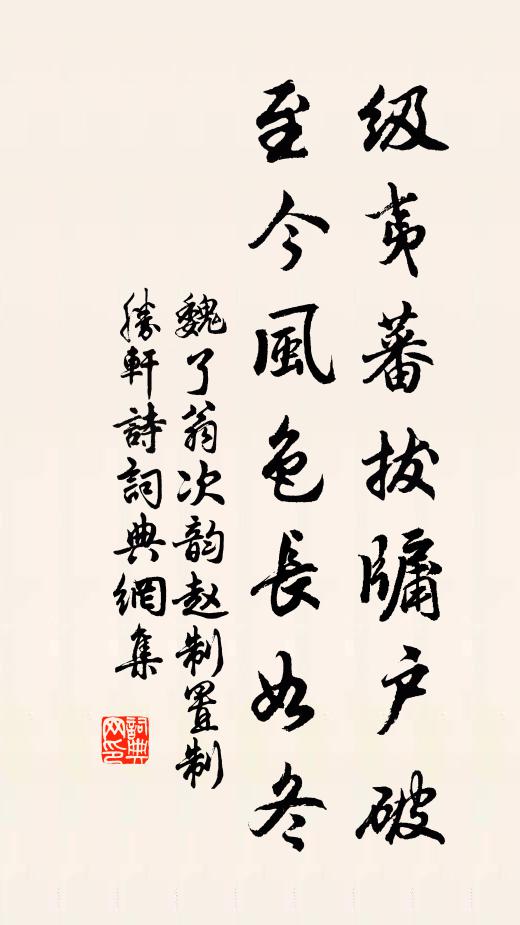 级夷蕃拔牖户破
至今風色長如冬
魏了翁次韵赵制置制
勝軒詩詞典網集
詞典网印